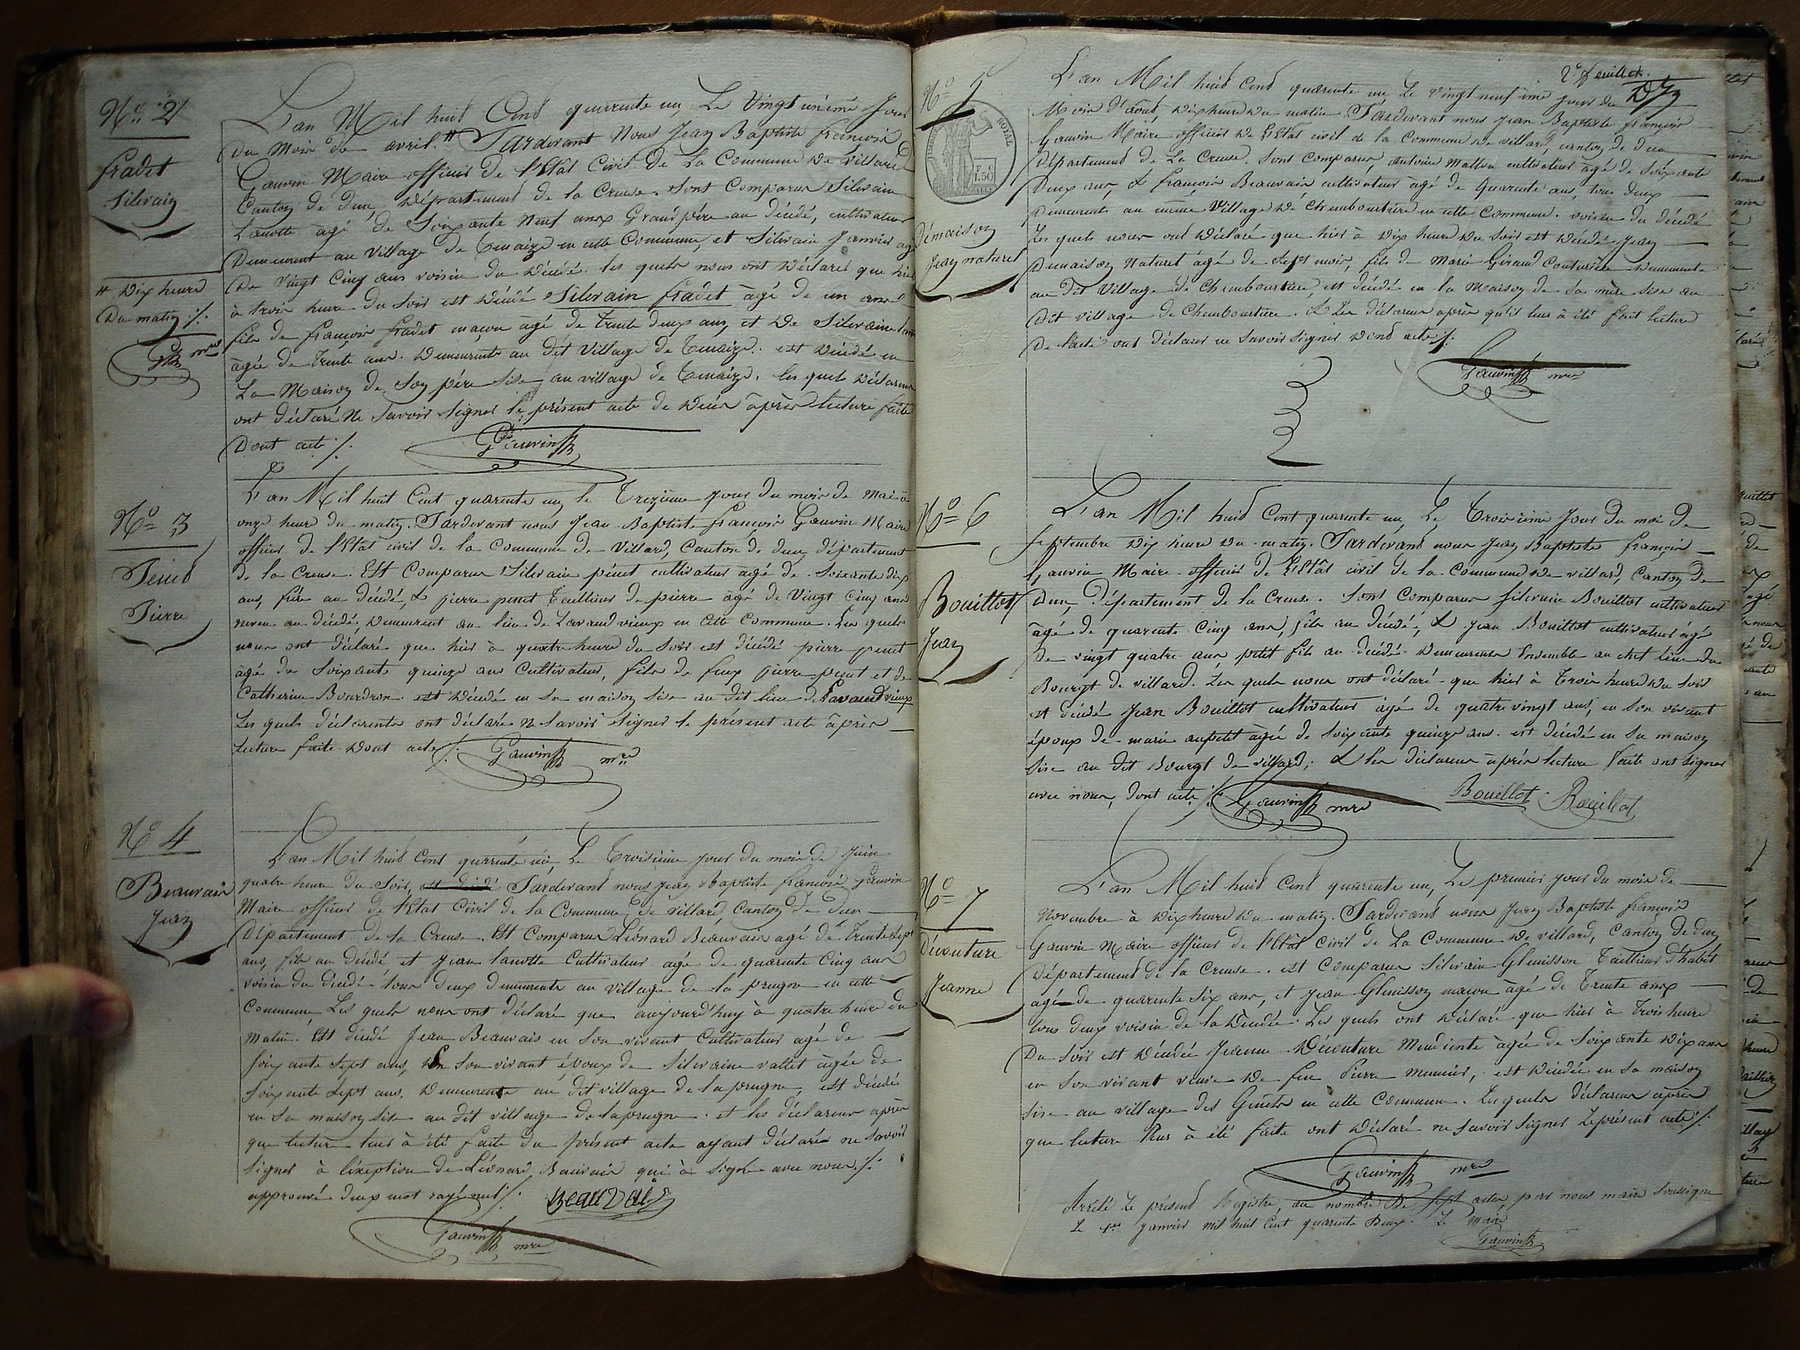 N° 2
fradet
Silvain
# Dix heures
Du matin ./.
L'an Mil huit Cent quarente un Le Vingt unième Jour
Du Mois de avril # Pardevant Nous Jean Baptiste françois
Gauvin Maire officier de l'Etat Civil de La Commune de Villard
Canton de dun, Département de la Creuse. Sont Comparus Silvain
Lanotte âgé de Soixante Neuf ans Grand père au décédé, cultivateur
Demeurant au Village de en cette Commune et Silvain Janvier ag
De Vingt Cinq ans voisin du décédé. les quels nous ont Déclaré que hier
à trois heure du Soir est décédé Silvain fradet âgé de un ans
fils de françois fradet maçon âgé de trente deux ans, et De Silvaine
âgée de trente ans. Demeurants au dit Village de est décédé en
La Maison de Son père sise au village de les quels Déclarants
ont déclaré Ne Savoir Signer le présent acte de décès après lecture faite
Dont acte ./. Gauvin
N° 3
Peinet
Pierre
L'an Mil huit Cent quarente un le Treizième Jour du mois de Mai à
onze heure du matin. Pardevant nous Jean Baptiste françois Gauvin Maire
officier de l'Etat civil de la Commune de Villard, Canton de dun, département
de la Creuse. Est Comparus Silvain peinet cultivateur agé de Soixante dix
ans, frère au décédé, & pierre peinet Tailleur de pierre agé de Vingt Cinq ans
neveu au décédé, Demeurent au lieu de Lavaudvieux en Cette Commune. Les quels
nous ont déclaré que hier à quatre heure du Soir est décédé pierre peinet
âgé de Soixante quinze ans Cultivateur, fils de feux pierre peinet et de
Catherine Bourdron. est décédé en sa maison sise au dit lieu de Lavaudvieux
Les quels déclarants ont déclaré ne Savoir Signer le présent acte après
lecture faite Dont acte ./. Gauvin mre
N° 4
Beauvais
Jean
L'an Mil huit Cent quarente un, Le Troisième Jour du mois de Juin
quatre heure du Soir, est décédé Pardevant nous Jean Baptiste françois Gauvin
Maire officier de l'Etat Civil de la Commune de Villard, Canton de dun
Département de la Creuse. Est Comparus Léonard Beauvais agé de Trente Sept
ans, fils au décédé et Jean Lanotte Cultivateur agé de quarente Cinq ans
voisin du décédé tous deux demeurants au village de la prugne en cette
Commune, Les quels nous ont déclaré que aujourd'huy à quatre heure du
Matin. Est décédé Jean Beauvais en Son vivant Cultivateur agé de
Soixante Sept ans, En Son vivant époux de Silvaine vallet âgée de
Soixante Sept ans, Demeurante au dit village de Laprugne, est décédé
en Sa maison sise au dit village de Laprugne. et les déclarans après
que lecture leurs à été faite du présent acte ayant déclaré ne Savoir
Signer à l'exeption de Léonard Bauvais qui à Signé avec nous ./.
approuvé deux mot rayé nul ./. Beauvais
Gauvin mre
2e feuillet
N° 5
ROYAL
1.50
Démaison
Jean naturel
L'an Mil huit Cent quarente un Le Vingt neuf ième Jour du
Mois d'août, Dix heure du matin Pardevant nous Jean Baptiste françois
Gauvin Maire officier de l'Etat civil de la Commune de Villard, Canton de dun
Département de La Creuse. Sont Comparus, Antoine Mathieu cultivateur agé de Soixante
Deux ans, & françois Beauvais cultivateur âgé de Quarente ans, tous deux
Demeurants au même Village de Chembourtière en cette Commune. voisin du décédé
Les quels nous ont Déclaré que hier à Dix heure du Soir est décédé Jean
Demaison Naturel agé de Sept mois, fils de Marie Giraud Couturière Demeurente
au dit Village de Chembourtière, est décédé en la Maison de Sa mère Sise au
Dit village de Chembourtière. & Les déclarans après qu'il leurs à été fait lecture
De l'acte ont déclarés ne Savoir Signer Dont acte ./.
Gauvin mre
N° 6
Bouillot
Jean
L'an Mil huit Cent quarente un, Le Troisième Jour du moi de
Septembre Dix heure Du matin. Pardevant nous Jean Baptiste françois
Gauvin Maire officier de l'Etat civil de la Commune de villard, Canton de
Dun, Département de la Creuse. Sont Comparus Silvain Bouillot cultivateur
âgé de quarente Cinq ans, fils au décédé, & Jean Bouillot cultivateur âgé
De vingt quatre ans petit fils au décédé Demeurents Ensemble au chet lieu du
Bourgt de villard. Les quels nous ont déclaré que hier à Trois heure du Soir
est décédé Jean Bouillot cultivateur agé de quatre vingt ans, en Son vivant
époux de marie aupetit agée de Soixante quinze ans. est décédé en Sa maison
Sise au dit Bourgt de villard; & les déclarans après lecture faite ont Signés
avec nous, dont acte ./. Gauvin mre Bouillot Bouillot
N° 7
Décuture
Jeanne
L'an Mil huit Cent quarente un, Le premier Jour du mois de
Novembre à Dix heure Du matin. Pardevant nous Jean Baptiste françois
Gauvin Maire officier de l'Etat civil de La Commune De villard, Canton de dun
Département de la Creuse. est comparus Silvain Glenisson Tailleur d'habit
agé de quarente Six ans, et Jean Glenisson maçon âgé de Trente ans
tous deux voisin de la Décédée. Les quels ont Déclaré que hier à Trois heure
Du Soir est Décédée Jeanne Décuture Mendiente âgée de Soixante Dix ans
en Son vivant veuve de feu Pierre meunier, est décédée en Sa maison
Sise au village des Genêts en cette Commune. Les quels déclarans après
que lecture leurs à été faite ont déclaré ne Savoir Signer Le présent acte ./.
Gauvin mre
Arrêté Le présent Registre, au nombre De Sept actes, par nous maire Soussigné
Le 1er Janvier mil huit Cent quarente Deux. Le Maire
Gauvin